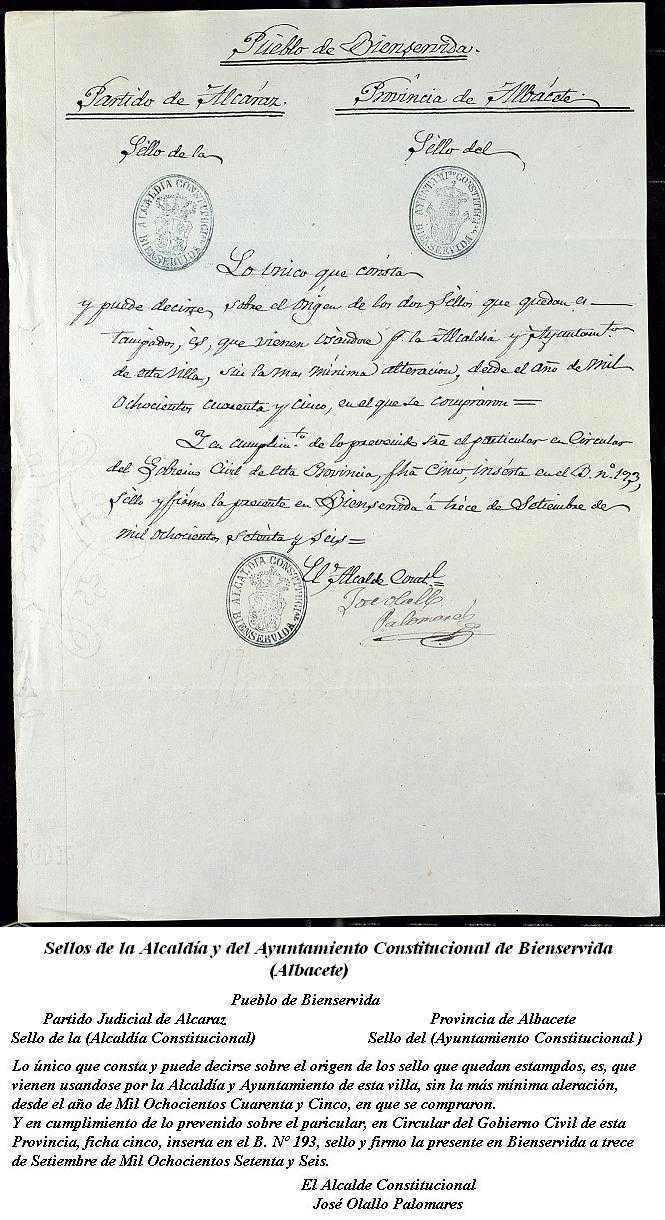 Pueblo de Bienservida.
Partido de Alcáraz. Províncía de Albácete.
Séllo de la Séllo del
ALCALDIA CONSTITUCI.AL BIENSERVIDA
AYUNTAMI.TO CONSTITUCI.AL BIENSERVIDA
Lo único que cónsta
y puede decirse sobre el órigen de los dos Séllos que quedan es-
tampados, és, que vienen usándose p.r la Alcaldía y Ayuntamt.o
de esta Villa, sin la mas mínima alteracion, desde el año de mil
ochocientos cuarenta y cinco, en el que se compraron =
Y en cumplim.to de lo prevenido sre el particular en Circular
del Gobierno Civil de esta Provincia, fha cinco, insérta en el B. n.o 193,
séllo y fírmo la presente en Bienservida á tréce de Setiembre de
mil ochocientos seténta y seis =
ALCALDIA CONSTITUCI.AL BIENSERVIDA
El Alcalde Const.l
Jose Olallo
Palomares
Sellos de la Alcaldía y del Ayuntamiento Constitucional de Bienservida
(Albacete)
Pueblo de Bienservida
Partido Judicial de Alcaraz Provincia de Albacete
Sello de la (Alcaldía Constitucional) Sello del (Ayuntamiento Constitucional )
Lo único que consta y puede decirse sobre el origen de los sello que quedan estampdos, es, que
vienen usandose por la Alcaldía y Ayuntamiento de esta villa, sin la más mínima aleración,
desde el año de Mil Ochocientos Cuarenta y Cinco, en que se compraron.
Y en cumplimiento de lo prevenido sobre el paricular, en Circular del Gobierno Civil de esta
Provincia, ficha cinco, inserta en el B. Nº 193, sello y firmo la presente en Bienservida a trece
de Setiembre de Mil Ochocientos Setenta y Seis.
El Alcalde Constitucional
José Olallo Palomares